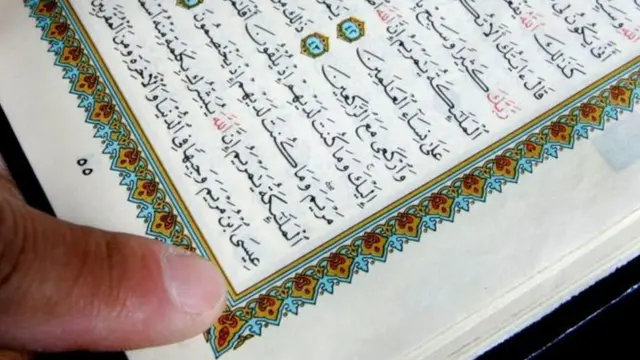 أَنَّىٰ يَكُونُ لِي
كَذَٰلِكَ ٱللَّهُ
قَالَ ءَايَتُكَ أَلَّا تُكَلِّمَ
رَّبَّكَ كَثِيرًا وَسَبِّحْ
ٱلْمَلَـٰٓئِكَةُ يَـٰمَرْيَمُ إِنَّ ٱللَّهَ
عَلَىٰ نِسَآءِ ٱلْعَـٰلَمِينَ ٤٢
وَٱرْكَعِي مَعَ ٱلرَّٰكِعِينَ ٤٣
إِلَيْكَ وَمَا كُنتَ لَدَيْهِمْ إِذْ يُلْقُونَ
مَرْيَمَ وَمَا كُنتَ لَدَيْهِمْ إِذْ يَخْتَصِمُونَ
ٱلْمَلَـٰٓئِكَةُ يَـٰمَرْيَمُ إِنَّ ٱللَّهَ يُبَشِّرُكِ بِكَلِمَةٍ مِّنْهُ
عِيسَى ٱبْنُ مَرْيَمَ وَجِيهًا فِي ٱلدُّنْيَا وَٱلْـَٔاخِرَةِ وَمِنَ ٱلْمُقَرَّبِينَ
٥٥